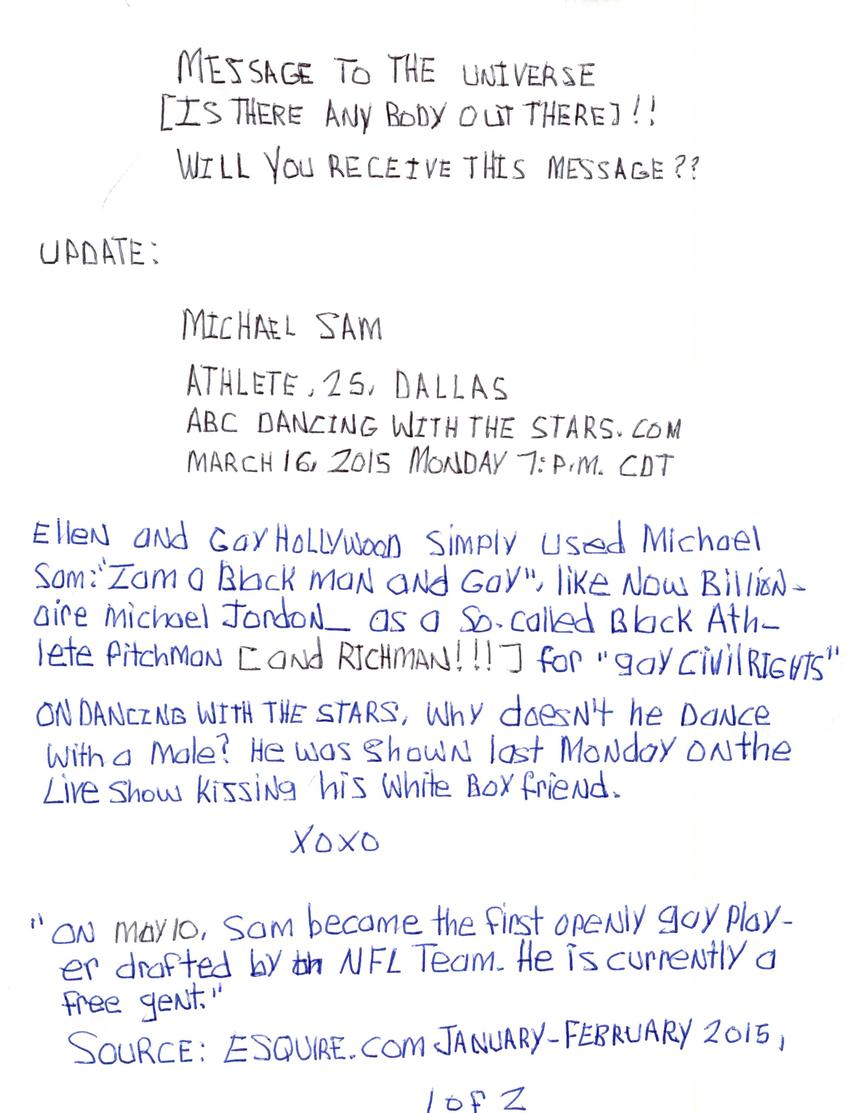 MESSAGE TO THE UNIVERSE
[IS THERE ANY BODY OUT THERE]!!
WILL YOU RECEIVE THIS MESSAGE??
UPDATE:
MICHAEL SAM
ATHLETE, 25, DALLAS
ABC DANCING WITH THE STARS.COM
MARCH 16, 2015 MONDAY 7: P.M. CDT
Ellen and Gay Hollywood simply used Michael
Sam: "I am a Black man and Gay", like Now Billion-
aire Michael Jordon_ as a so-called Black Ath-
lete Pitchman [and RICHMAN!!!] for "gay Civil RIGHTS"
ON DANCING WITH THE STARS, Why doesn't he Dance
with a Male? He was shown last Monday on the
Live Show kissing his White Boy friend.
XOXO
"ON MAY 10, Sam became the first openly gay play-
er drafted by an NFL Team. He is currently a
free gent."
SOURCE: ESQUIRE.COM JANUARY-FEBRUARY 2015,
1 of 2